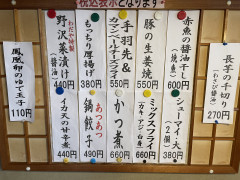 税込表示となります
長芋の千切り
(わさび醤油)
270円
赤魚の醤油干し
(焼魚)
600円
豚の生姜焼
550円
手羽先&
カマンベールチーズフライ
550円
もっちり厚揚げ
380円
わだや特製
野沢菜漬け
(醤油)
440円
シューマイ・大
(2個)
380円
ミックスフライ
(カキ・エビ・白身)
660円
かつ煮
660円
あつあつ
鍋餃子
490円
イカ天の甘辛煮
440円
鳳凰卵のゆで玉子
110円